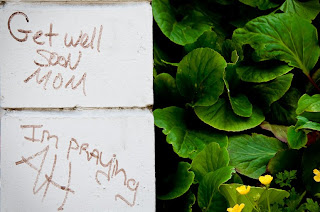 Get well
Soon
MOM
Im praying